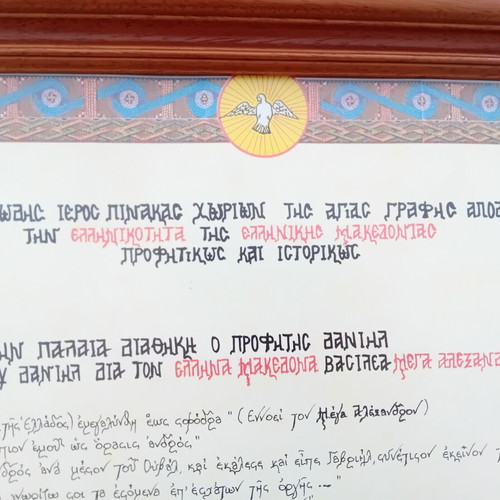 ΩΔΗΣ ΙΕΡΟΣ ΠΙΝΑΚΑΣ ΧΩΡΙΩΝ ΤΗΣ ΑΓΙΑΣ ΓΡΑΦΗΣ ΑΠΟΔ
ΤΗΝ ΕΛΛΗΝΙΚΟΤΗΤΑ ΤΗΣ ΕΛΛΗΝΙΚΗΣ ΜΑΚΕΔΟΝΙΑΣ
ΠΡΟΦΗΤΙΚΩΣ ΚΑΙ ΙΣΤΟΡΙΚΩΣ
ΗΝ ΠΑΛΑΙΑ ΔΙΑΘΗΚΗ Ο ΠΡΟΦΗΤΗΣ ΔΑΝΙΗΛ
Υ ΔΑΝΙΗΛ ΔΙΑ ΤΟΝ ΕΛΛΗΝΑ ΜΑΚΕΔΟΝΑ ΒΑΣΙΛΕΑ ΜΕΓΑ ΑΛΕΞΑΝΔ
τῆς Ἑλλάδος) ἐμεγαλύνθη ἕως σφόδρα" (Ἐννοεῖ τον Μέγα Αλέξανδρον)
πιον ἐμοῦ ὡς ὅρασις ἀνδρός."
δρός ἀνά μέσον τοῦ Οὐβάλ, καί ἐκάλεσε καί εἶπε Γαβριήλ, συνέτισον ἐκεῖνον τ
γνωρίζω σοι τα ἐσόμενα ἐπ' ἐσχάτων τῆς ὀργῆς..."